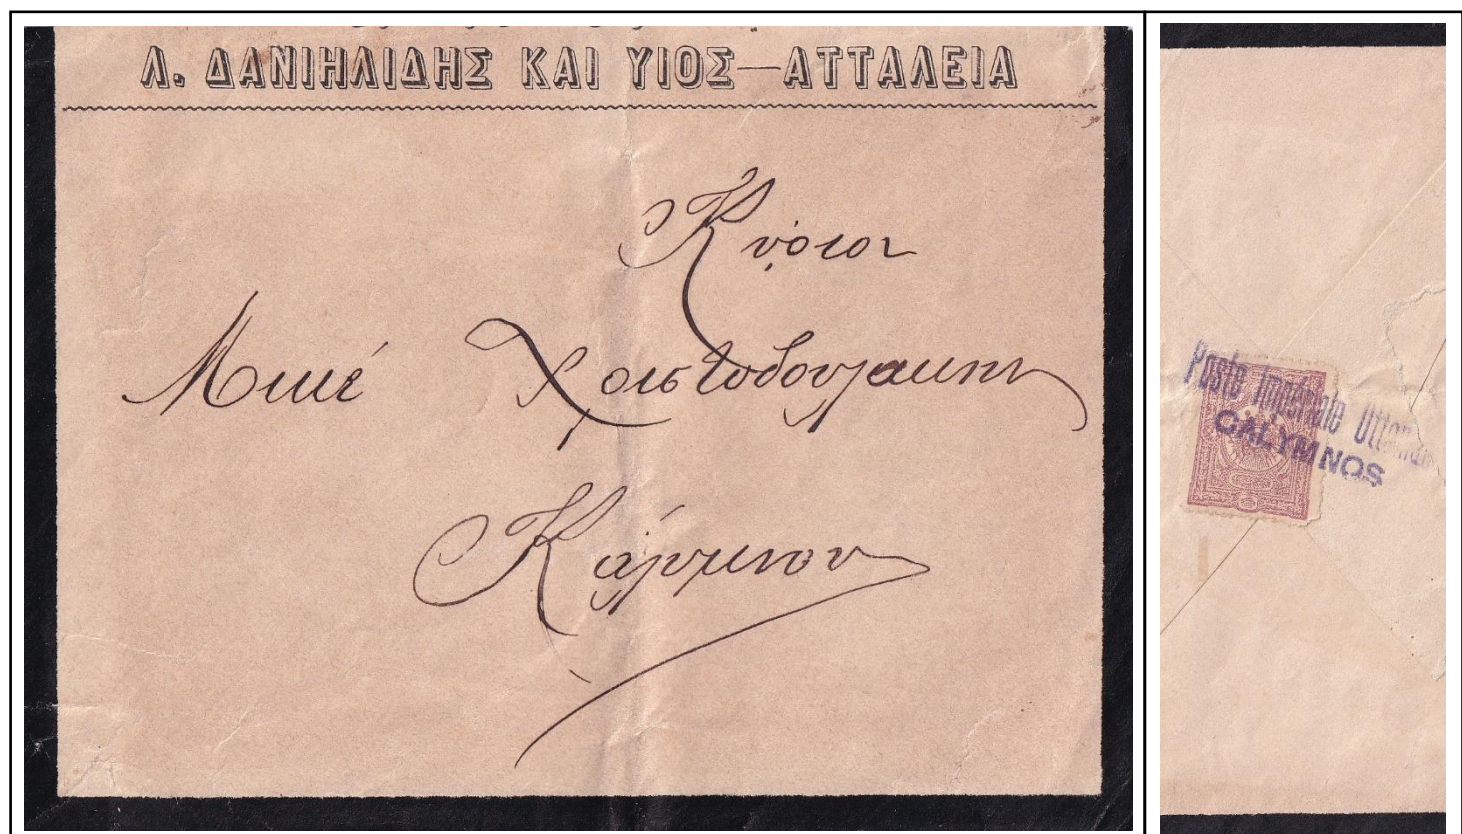 Λ. ΔΑΝΙΗΛΙΔΗΣ ΚΑΙ ΥΙΟΣ—ΑΤΤΑΛΕΙΑ
Κύριον
Μικέ Χριστοδουλακην
Κάλυμνον
Poste Imperiale Ottomane
CALYMNOS